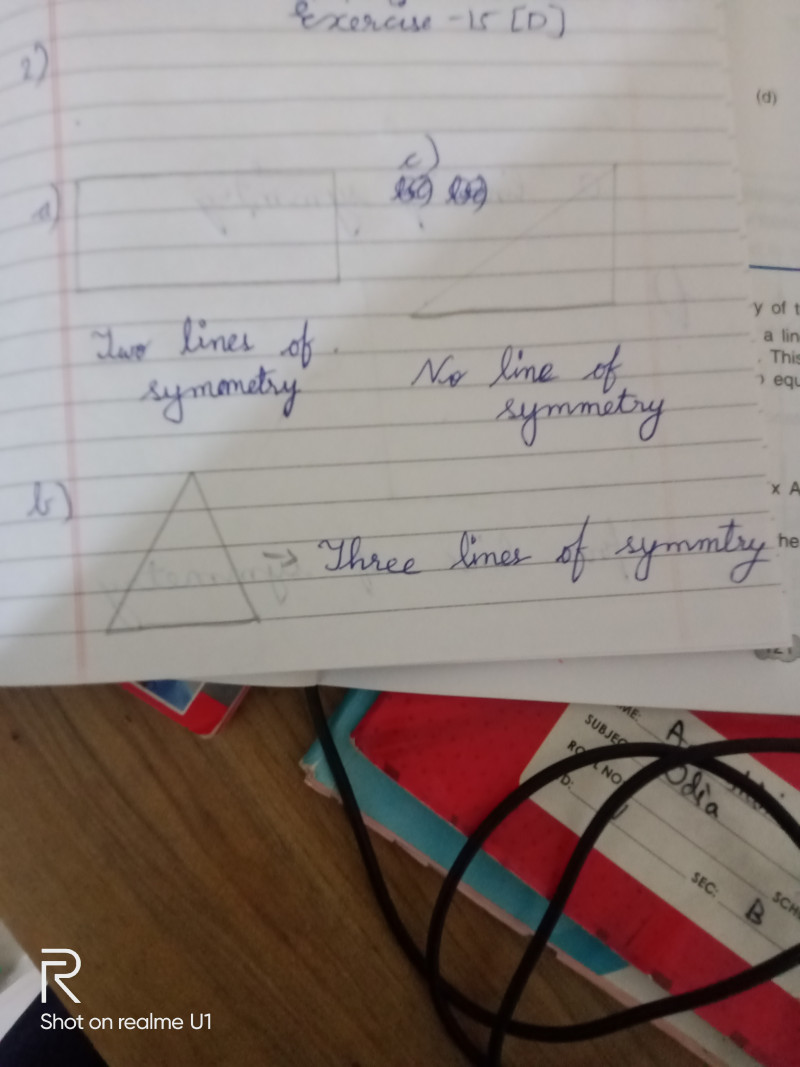 Exercise - 15 [D]
2)
a)
Two lines of
symmetry
c)
No line of
symmetry
b)
→ Three lines of symmtry
(d)
y of t
a lin
. This
equ
x A
he
121
SUBJE
ROLL NO:
Odia
SEC: B
SCH
R
Shot on realme U1